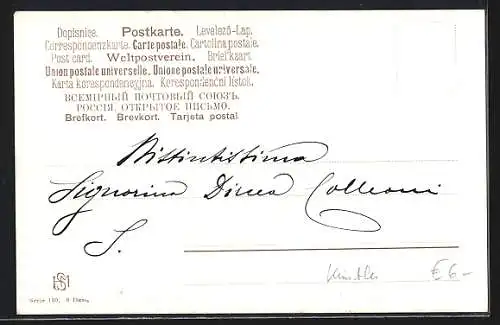 Dopisnice. Postkarte. Levelező-Lap.
Correspondenzkarte. Carte postale. Cartolina postale.
Post card. Weltpostverein. Briefkaart.
Union postale universelle. Unione postale universale.
Karta korespondencyjna. Korespondenční lístek.
ВСЕМІРНЫЙ ПОЧТОВЫЙ СОЮЗЪ.
РОССІЯ. ОТКРЫТОЕ ПИСЬМО.
Brefkort. Brevkort. Tarjeta postal
Distintissima
Signorina Dirce Colleoni
S.
Künstler € 6-
Serie 180. 6 Dess.